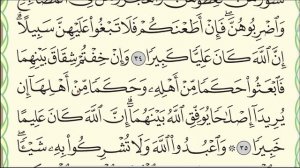 وَاضْرِبُوهُنَّ ۖ فَإِنْ أَطَعْنَكُمْ فَلَا تَبْغُوا عَلَيْهِنَّ سَبِيلًا ۗ
إِنَّ اللَّهَ كَانَ عَلِيًّا كَبِيرًا ٣٤ وَإِنْ خِفْتُمْ شِقَاقَ بَيْنِهِمَا
فَابْعَثُوا حَكَمًا مِّنْ أَهْلِهِ وَحَكَمًا مِّنْ أَهْلِهَا إِن
يُرِيدَا إِصْلَاحًا يُوَفِّقِ اللَّهُ بَيْنَهُمَا ۗ إِنَّ اللَّهَ كَانَ عَلِيمًا
خَبِيرًا ٣٥ ۞ وَاعْبُدُوا اللَّهَ وَلَا تُشْرِكُوا بِهِ شَيْئًا ۖ